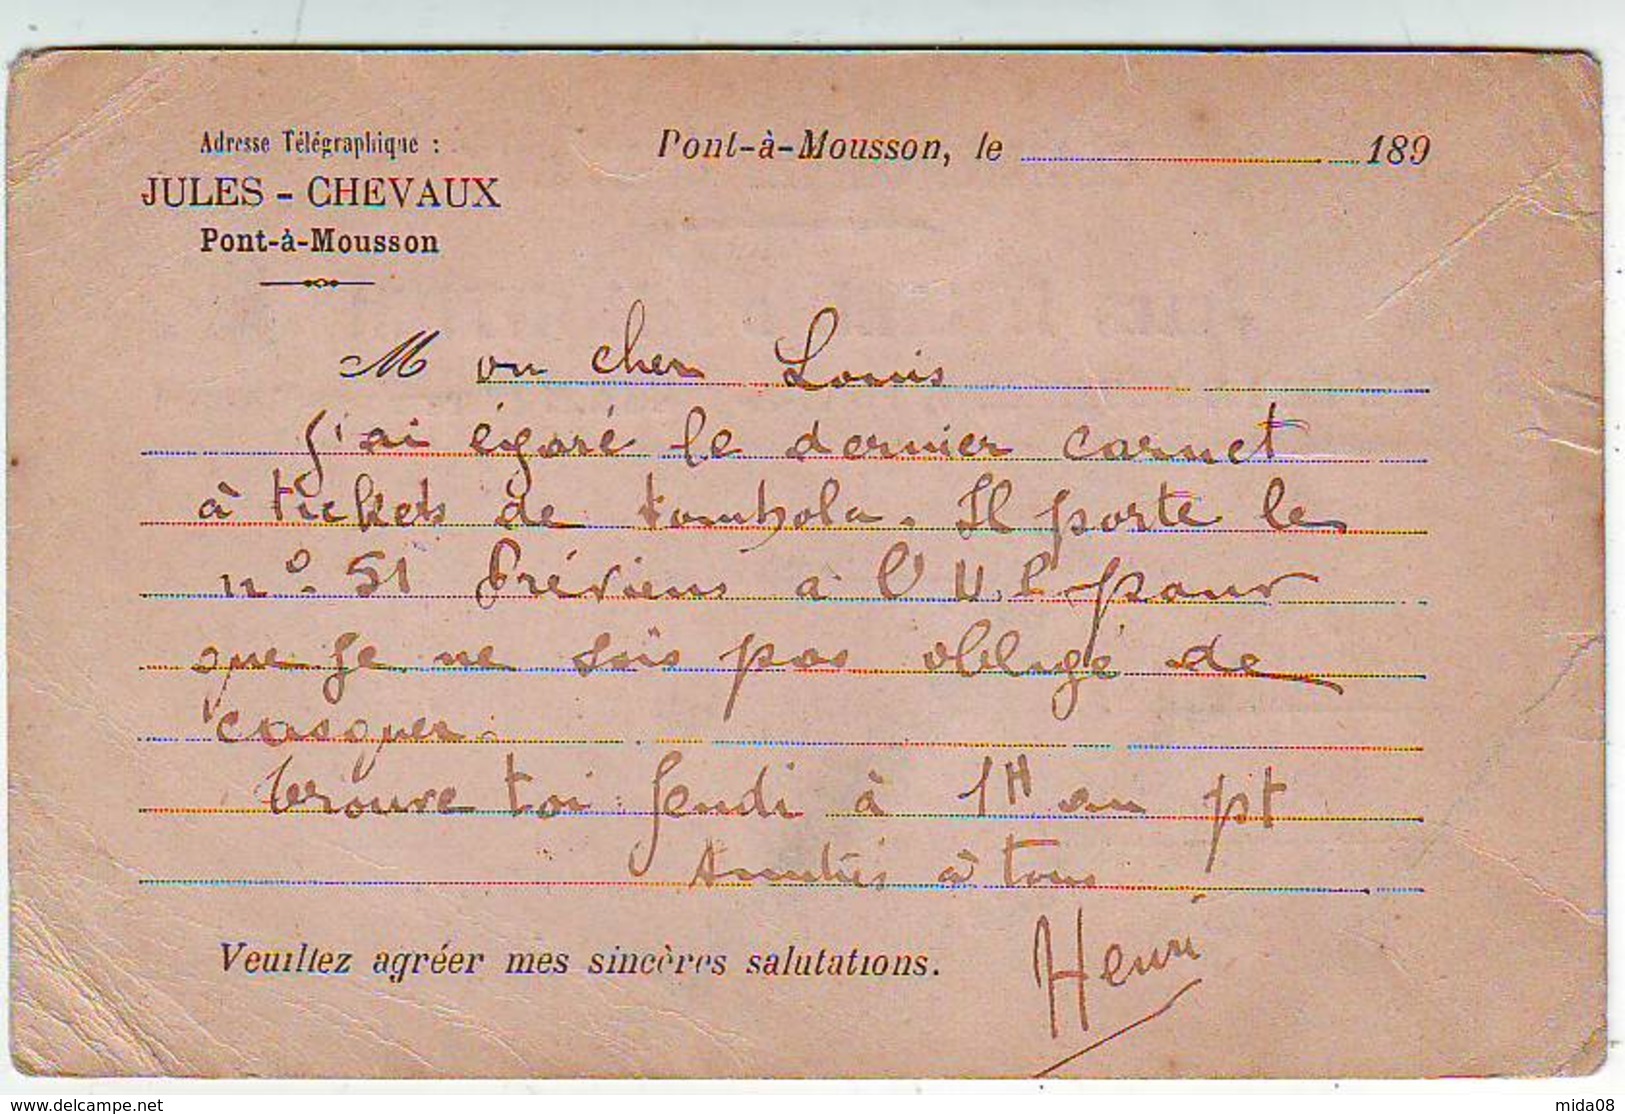 Adresse Télégraphique :
JULES - CHEVAUX
Pont-à-Mousson
Pont-à-Mousson, le 189
Mon cher Louis
J'ai égaré le dernier carnet
à tickets de tombola. Il porte le
n° 51 Préviens à l'U.L pour
que je ne sois pas obligé de
casquer.
trouve toi Jeudi à 1H au pt
Amitiés à tous
Veuillez agréer mes sincères salutations.
Henri
delcampe.net
mida08